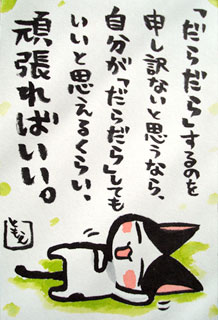 「だらだら」するのを
申し訳ないと思うなら、
自分が「だらだら」しても
いいと思えるくらい、
頑張ればいい。
ともえ